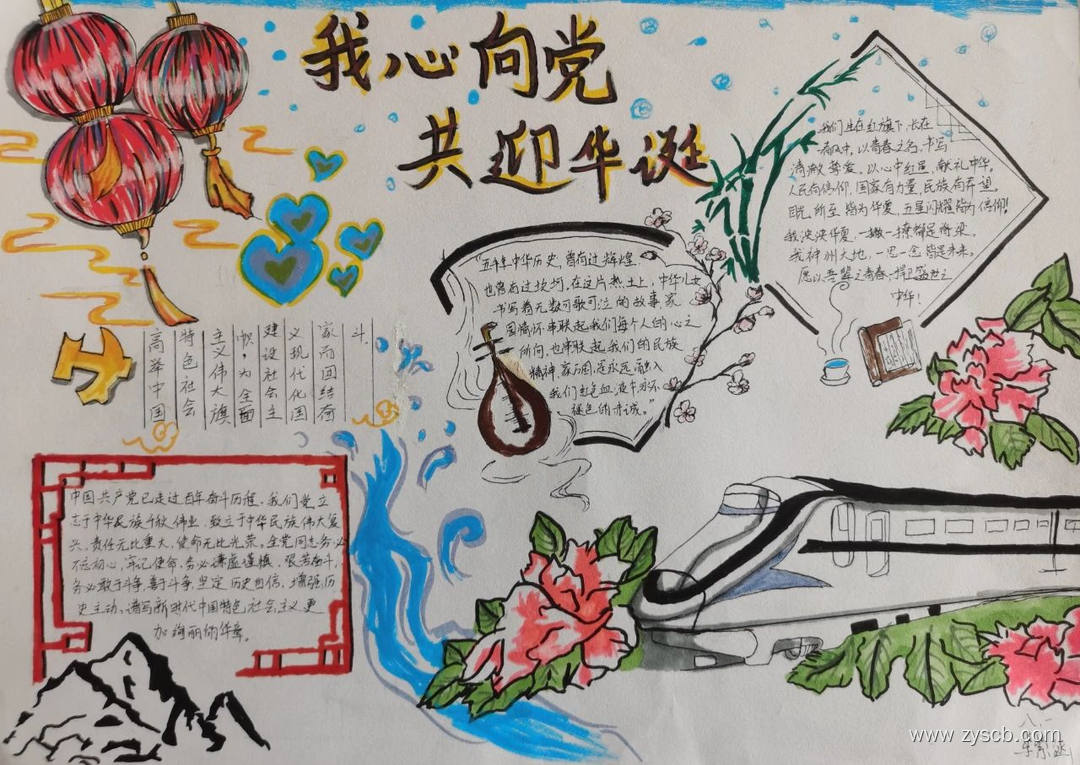 我心向党
共迎华诞
我们生在红旗下，长在
春风中，以青春之名，书写
清澈挚爱，以心中红星，献礼中华。
人民有信仰，国家有力量，民族有希望
目光所至皆为华夏，五星闪耀皆为信仰！
我泱泱华夏，一撇一捺都是脊梁，
我神州大地，一思一念皆是未来。
愿以吾辈之青春，捍卫盛世之
中华！
"五千年中华历史，曾有过辉煌
也曾有过坎坷，在这片热土上，中华儿女
书写着无数可歌可泣的故事，家
国情怀串联起我们每个人的心之
所向，也串联起我们的民族
精神，家与国，还永远融入
我们红色血液中永不
褪色的赤诚。"
高举中国
特色社会
主义伟大旗
帜，为全面
建设社会主
义现代化国
家而团结奋
斗.
中国共产党已走过百年奋斗历程。我们党立
志于中华民族千秋伟业，致立于中华民族伟大复
兴，责任无比重大，使命无比光荣。全党同志务必
不忘初心，牢记使命，务必谦虚谨慎、艰苦奋斗，
务必敢于斗争，善于斗争，坚定历史自信，增强历
史主动，谱写新时代中国特色社会主义更
加绚丽的华章。
八.一
www.zyscb.com